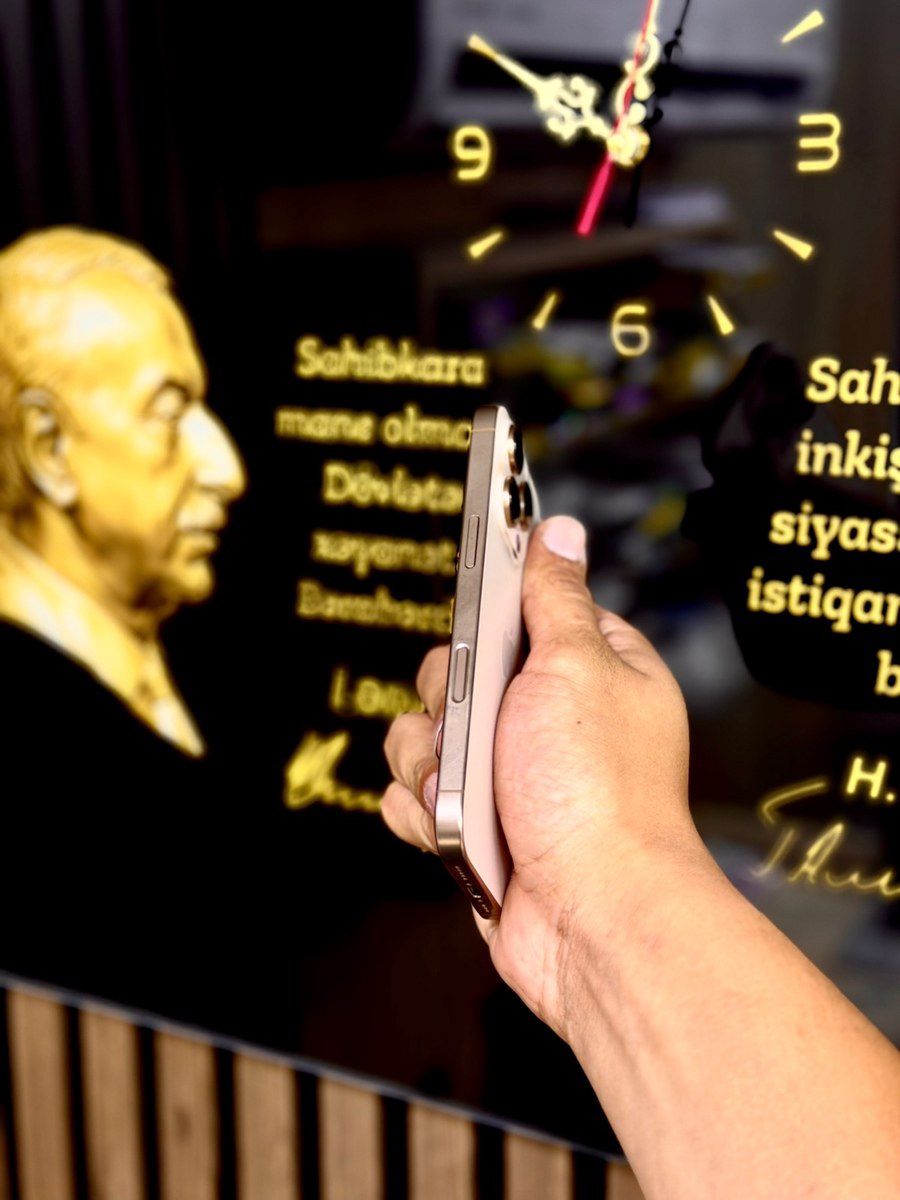 9
3
6
Sahibkara
mane olmo
Dövlətə
xəyanət
Sah
inkiş
siyas
istiqar
b
H.